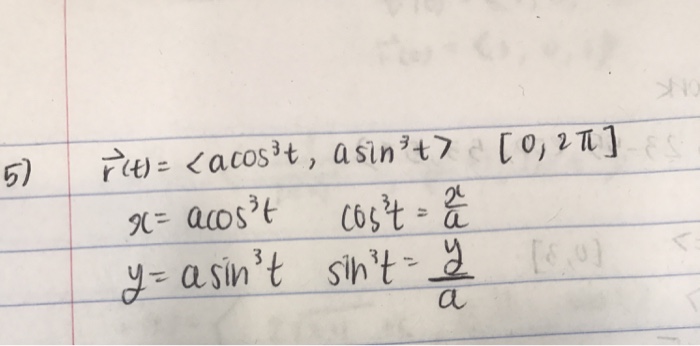 5) r⃗(t) = <acos³t, asin³t> [0, 2π]
x = acos³t cos³t = x/a
y = asin³t sin³t = y/a